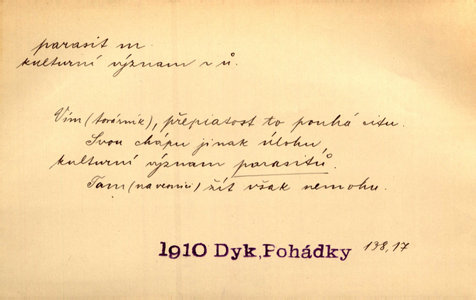 parasit m.
kulturní význam -ů.
Vím (továrník), přepiatost to pouhá citu.
Svou chápu jinak úlohu,
kulturní význam parasitů.
Tam (na vesnici) žít však nemohu.
1910 Dyk, Pohádky 138,17